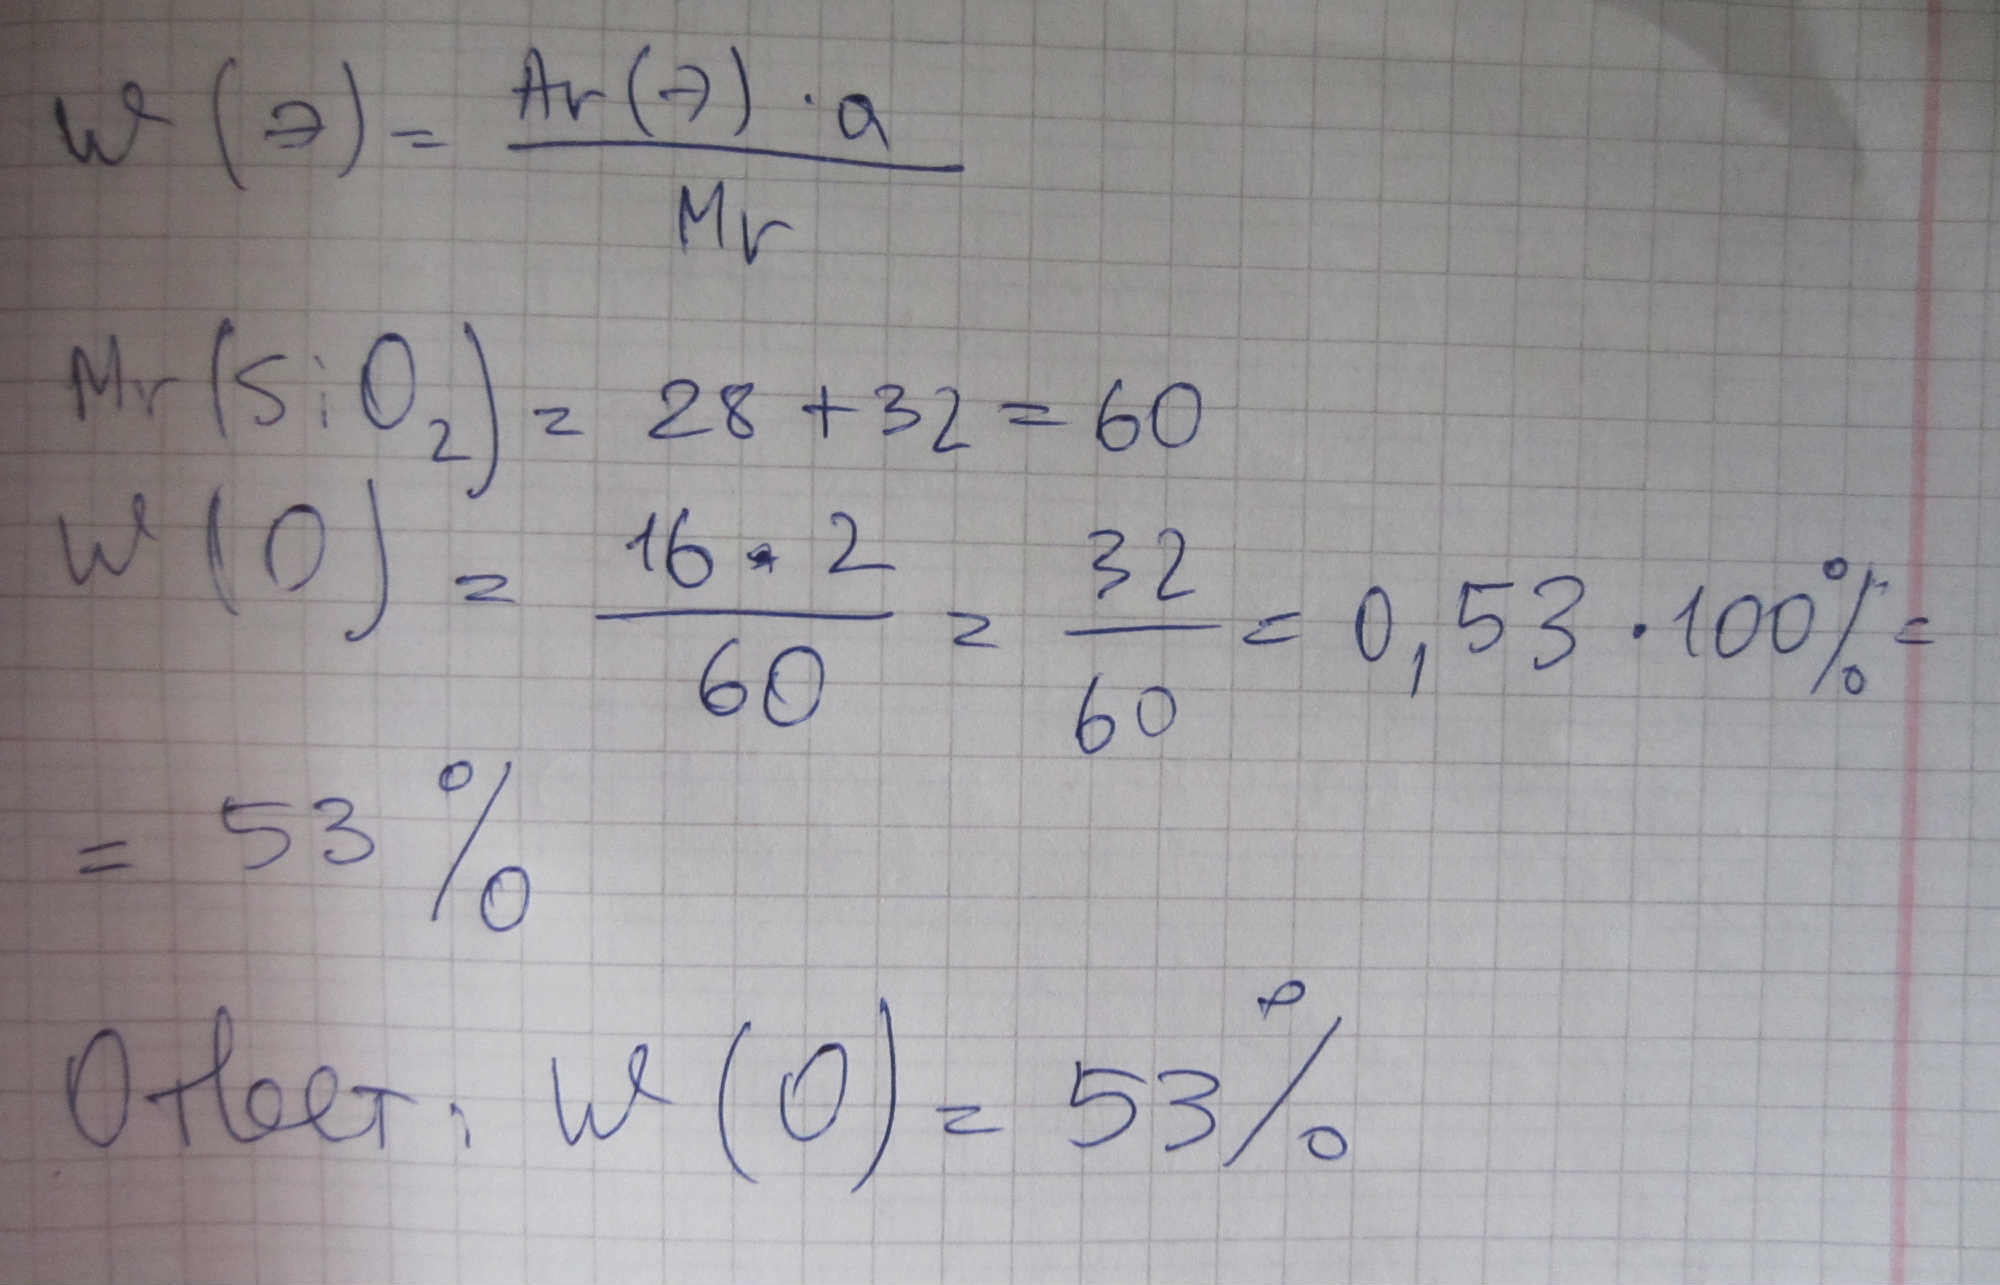 W(Э) = Ar(Э) · a / Mr
Mr(SiO₂) = 28 + 32 = 60
W(O) = 16 · 2 / 60 = 32 / 60 = 0,53 · 100% =
= 53 %
Ответ: W(O) = 53%